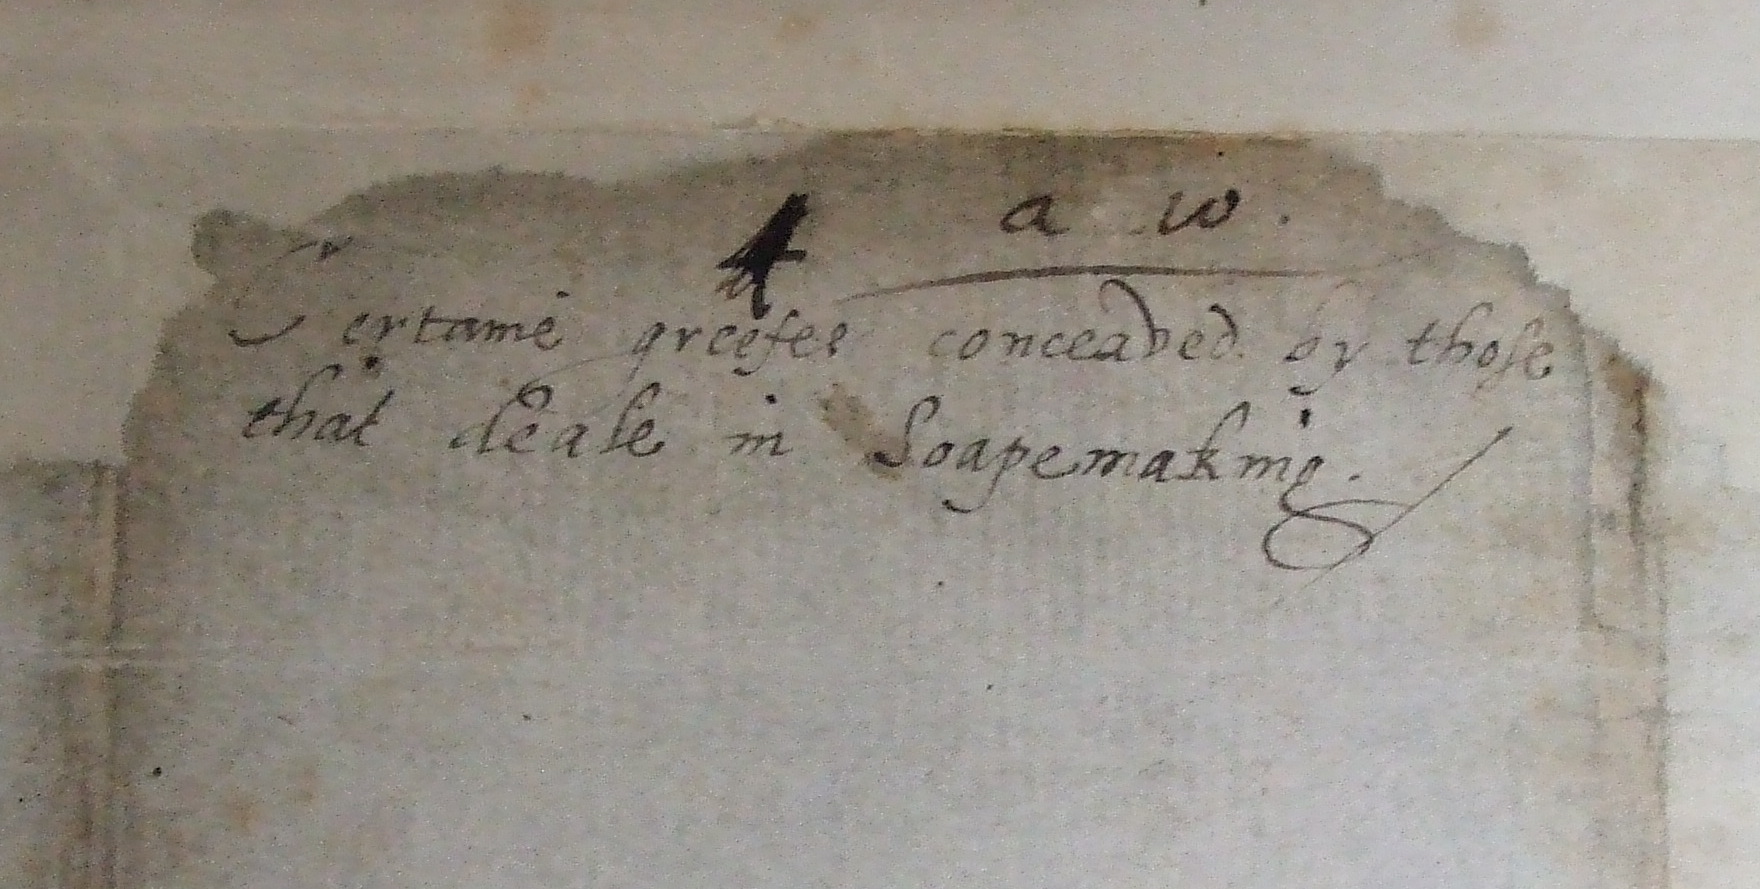 4 a w.
Certaine greefes conceaved by those
that deale in Soapemaking.